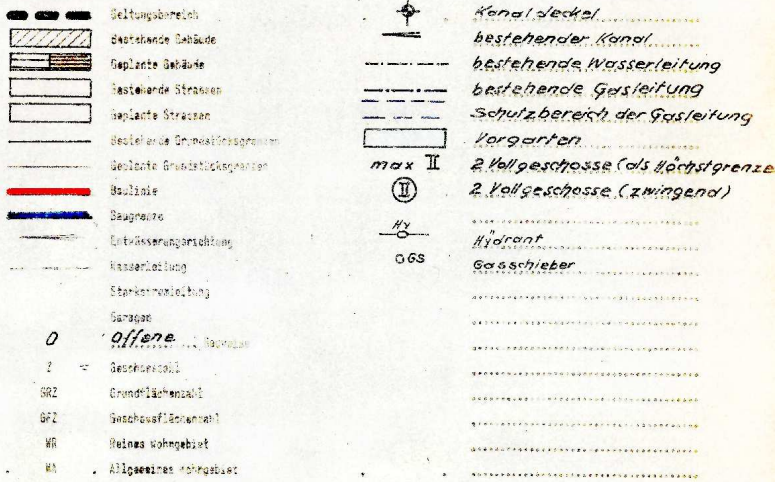 Geltungsbereich
Bestehende Gebäude
Geplante Gebäude
Bestehende Strassen
Geplante Strassen
Bestehende Grundstücksgrenzen
Geplante Grundstücksgrenzen
Baulinie
Baugrenze
Entwässerungsrichtung
Wasserleitung
Starkstromleitung
Garagen
O Offene Bauweise
Z = Geschosszahl
GRZ Grundflächenzahl
GFZ Geschossflächenzahl
WR Reines Wohngebiet
WA Allgemeines Wohngebiet
Kanaldeckel
bestehender Kanal
bestehende Wasserleitung
bestehende Gasleitung
Schutzbereich der Gasleitung
Vorgarten
max II 2 Vollgeschosse (als Höchstgrenze
II 2 Vollgeschosse (zwingend)
Hy Hydrant
GS Gasschieber